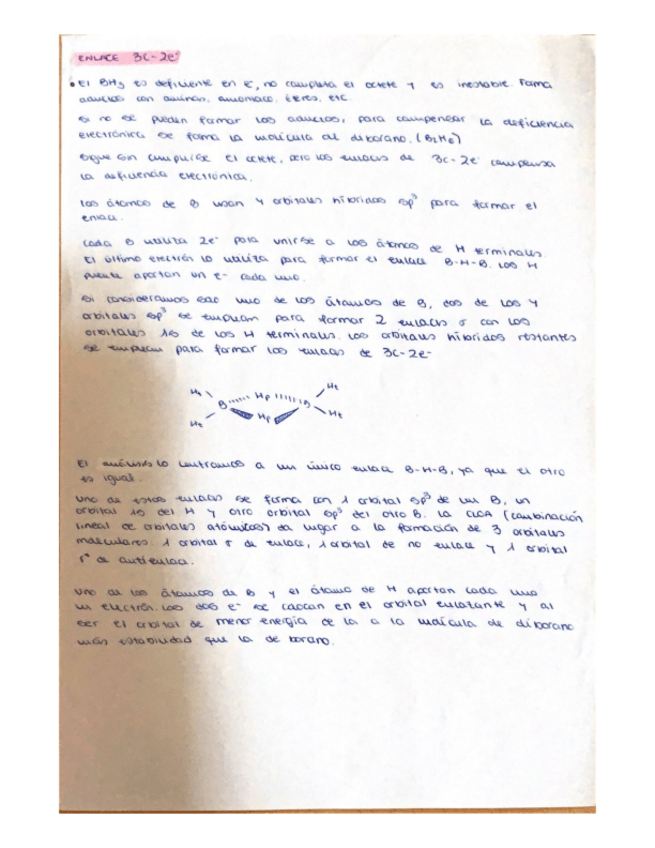 ENLACE 3C-2e⁻
• El BH₃ es deficiente en e⁻, no completa el octete y es inestable. Forma
aductos con aminas, amoniaco, éteres, etc.
Si no se pueden formar los aductos, para compensar la deficiencia
electrónica se forma la molécula de diborano. (B₂H₆)
Sigue sin cumplirse el octete, pero los enlaces de 3c-2e⁻ compensa
la deficiencia electrónica.
Los átomos de B usan 4 orbitales híbridos sp³ para formar el
enlace.
Cada B utiliza 2e⁻ para unirse a los átomos de H terminales.
El último electrón lo utiliza para formar el enlace B-H-B. Los H
puente aportan un e⁻ cada uno.
Si consideramos solo uno de los átomos de B, dos de los 4
orbitales sp³ se emplean para formar 2 enlaces σ con los
orbitales 1s de los H terminales. Los orbitales híbridos restantes
se emplean para formar los enlaces de 3c-2e⁻
Ht Ht
B Hp B
Hp
Ht Ht
El análisis lo centramos a un único enlace B-H-B, ya que el otro
es igual.
Uno de estos enlaces se forma con 1 orbital sp³ de un B, un
orbital 1s del H y otro orbital sp³ del otro B. La CLOA (combinación
lineal de orbitales atómicos) da lugar a la formación de 3 orbitales
moleculares. 1 orbital σ de enlace, 1 orbital de no enlace y 1 orbital
σ* de antienlace.
Uno de los átomos de B y el átomo de H aportan cada uno
un electrón. Los dos e⁻ se colocan en el orbital enlazante y al
ser el orbital de menor energía de la a la molécula de diborano
más estabilidad que la de borano.